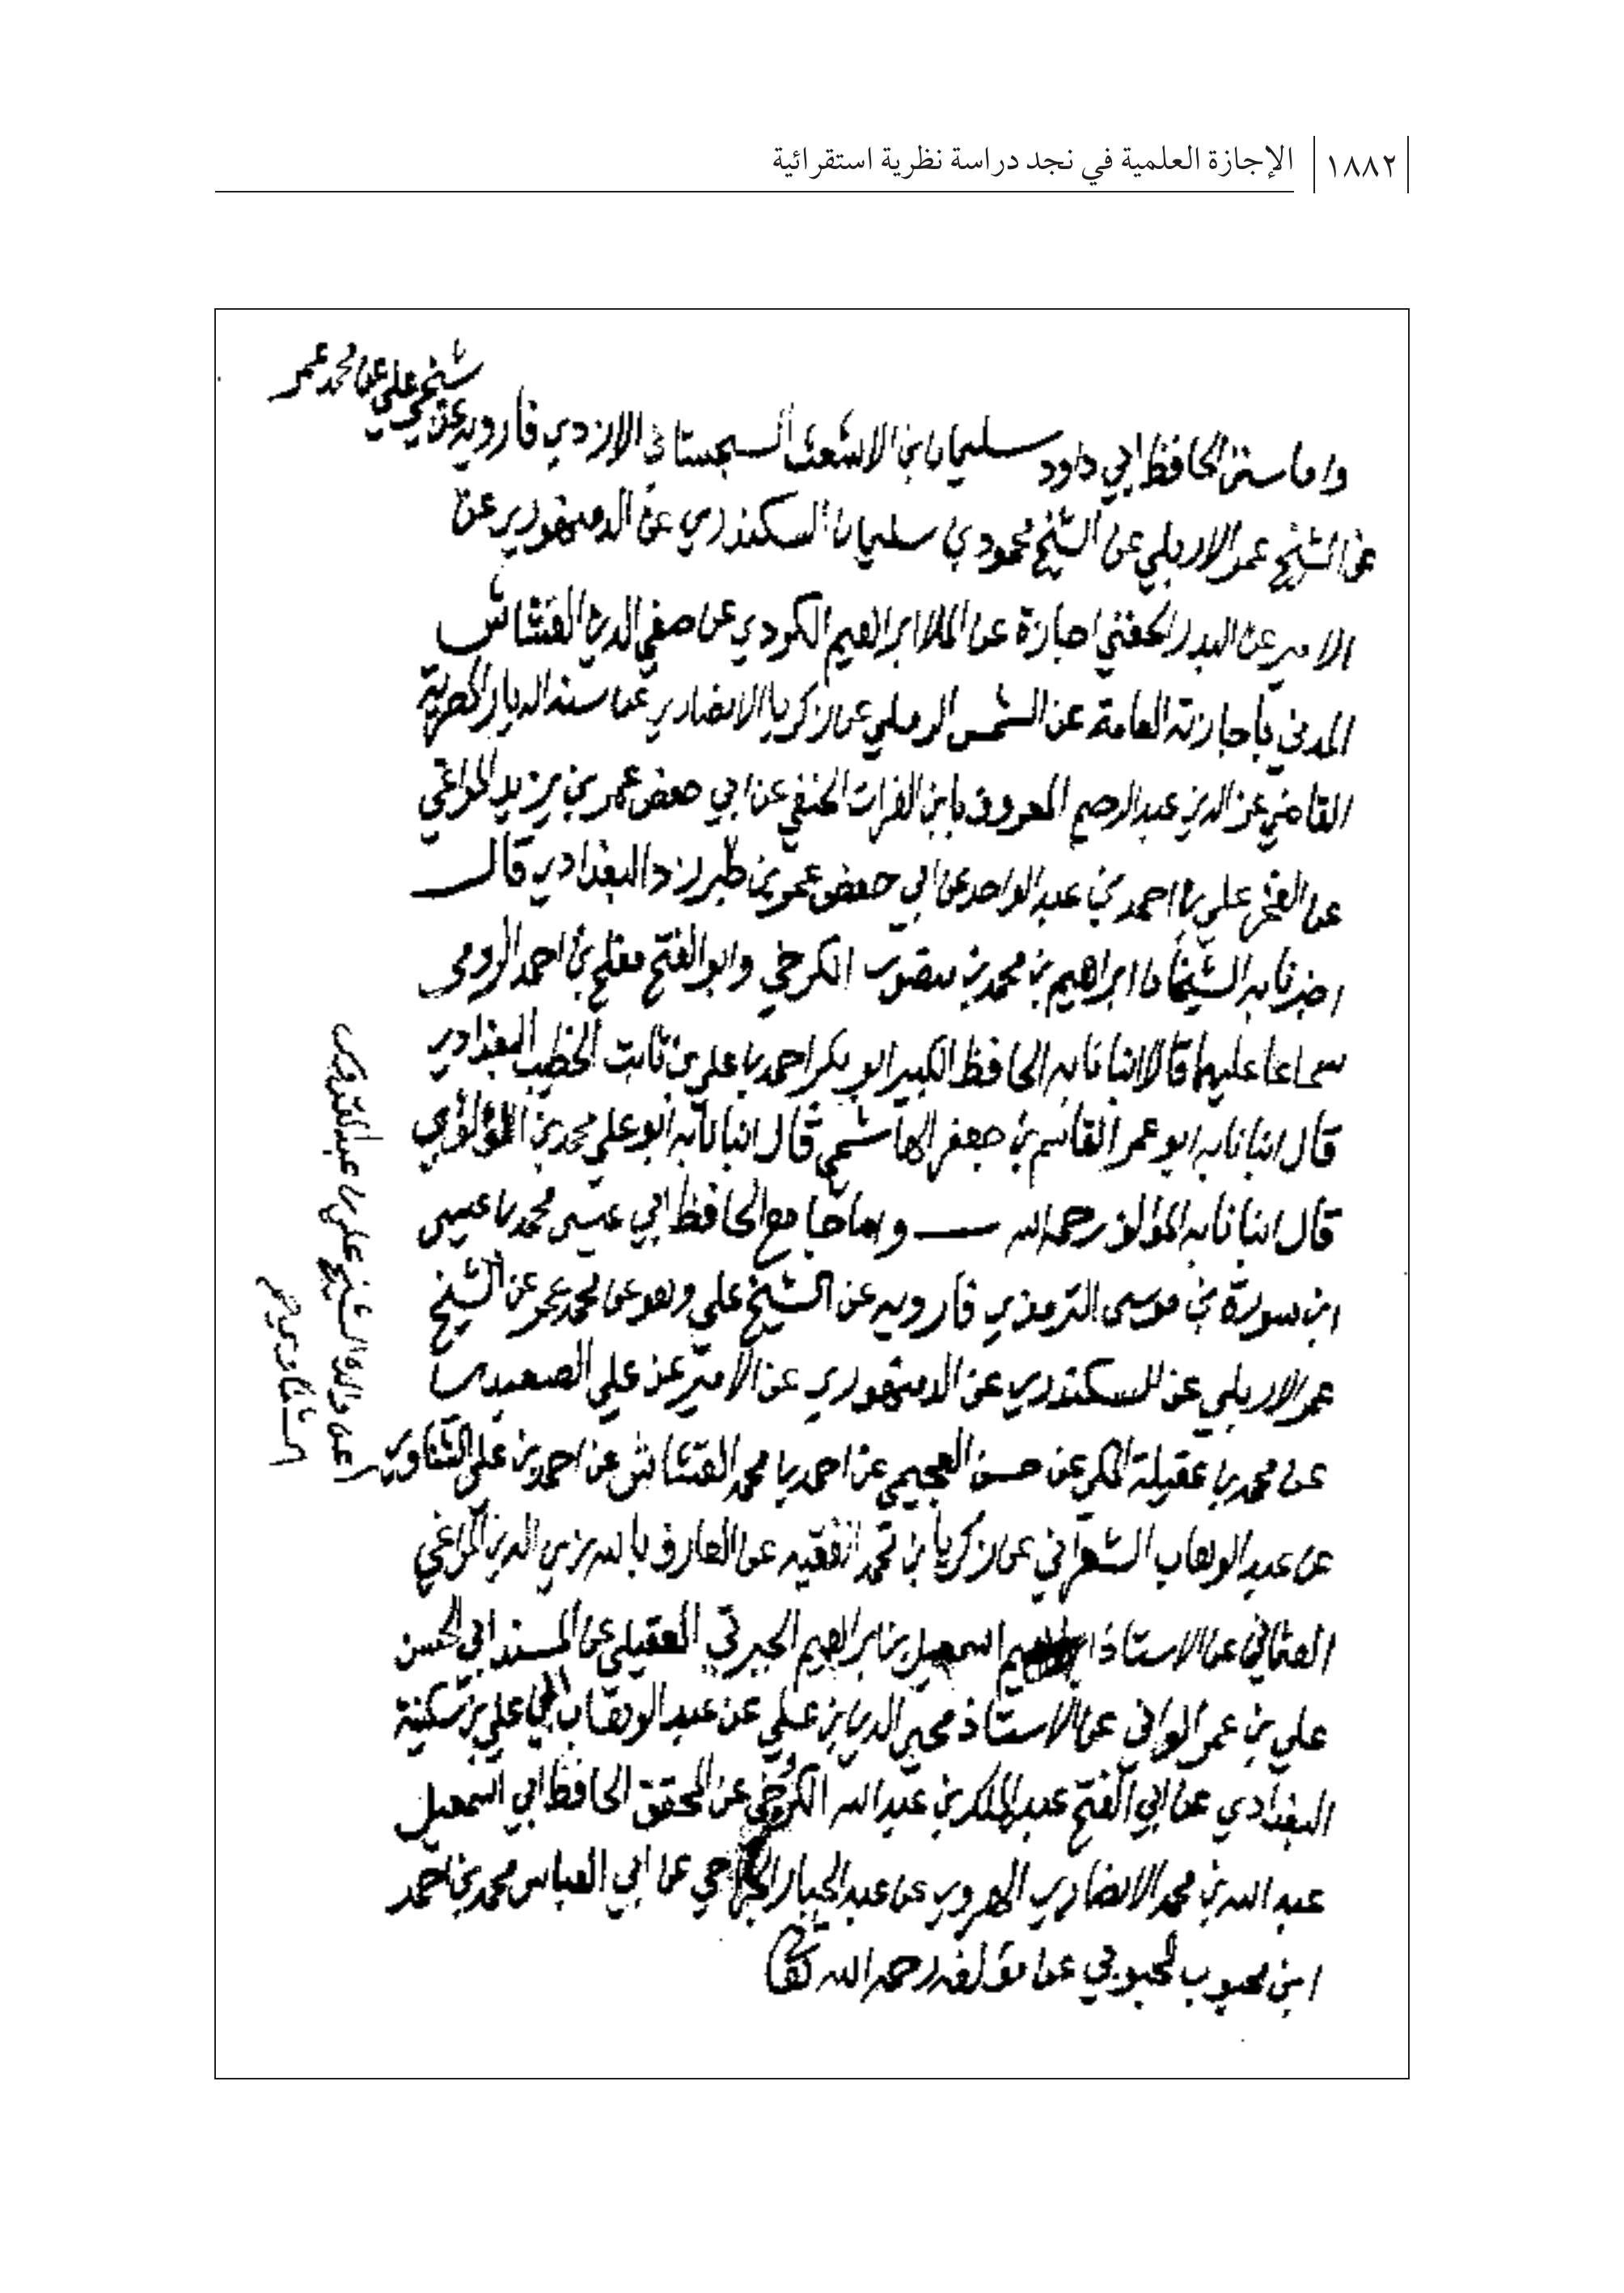 ١٨٨٢ الإجازة العلمية في نجد دراسة نظرية استقرائية
واما سنن الحافظ ابي داود سليمان ابن الاشعث السجستاني الازدي فارويه عن
شيخي علي عن محمد عمر
عن الشيخ عمر الاربلي عن الشيخ محمود بن سليمان السكندري عن الدمنهوري عن
الامير عن البدر الحفني اجازة عن الملا ابراهيم الكردي عن صفي الدين القشاش
المدني باجازته العامة عن الشمس الرملي عن زكريا الانصاري عن مسند الديار المصرية
القاضي عز الدين عبد الرحيم المعروف بابن الفرات الحنفي عن ابي حفص عمر بن يزيد المراغي
عن الفخر علي بن احمد بن عبد الواحد عن ابي حفص عمر بن طبرزد البغدادي قال
اخبرنا به الشيخان ابراهيم بن محمد بن منصور الكرخي وابو الفتح مفلح بن احمد الرومي
سماعا عليهما قالا انبانا به الحافظ الكبير ابو بكر احمد بن علي بن ثابت الخطيب البغدادي
قال انبانا به ابو عمر القاسم بن جعفر الهاشمي قال انبانا به ابو علي محمد بن اللؤلؤي
قال انبانا به المؤلف رحمه الله واما جامع الحافظ ابي عيسى محمد بن عيسى
ابن سورة بن موسى الترمذي فارويه عن الشيخ علي وهو عن محمد عمر عن الشيخ
عمر الاربلي عن السكندري عن الدمنهوري عن الامير عن علي الصعيدي
عن محمد بن عقيلة المكي عن حسن العجيمي عن احمد بن محمد القشاش عن احمد بن علي الشناوي
عن عبد الوهاب الشعراني عن زكريا بن محمد الفقيه عن العارف بالله زين الدين المراغي
العثماني عن الاستاذ اسمعيل بن ابراهيم الجبرتي العقيلي عن المسند ابي الحسن
علي بن عمر الواني عن الاستاذ محيي الدين بن علي عن عبد الوهاب بن علي بن سكينة
البغدادي عن ابي الفتح عبد الملك بن عبد الله الكرخي عن المحقق الحافظ ابي اسمعيل
عبد الله بن محمد الانصاري الهروي عن عبد الجبار الجراحي عن ابي العباس محمد بن احمد
ابن محبوب المحبوبي عن مؤلفه رحمه الله تعالى
عن والده الشيخ علي بن عبد القدوس
الشناوي